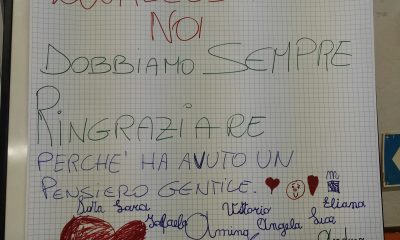 NOI
DOBBIAMO SEMPRE
RINGRAZIARE
PERCHE' HA AVUTO UN
PENSIERO GENTILE.
Sara Vittorio Eliana
Raffaele Amina Angela Luca